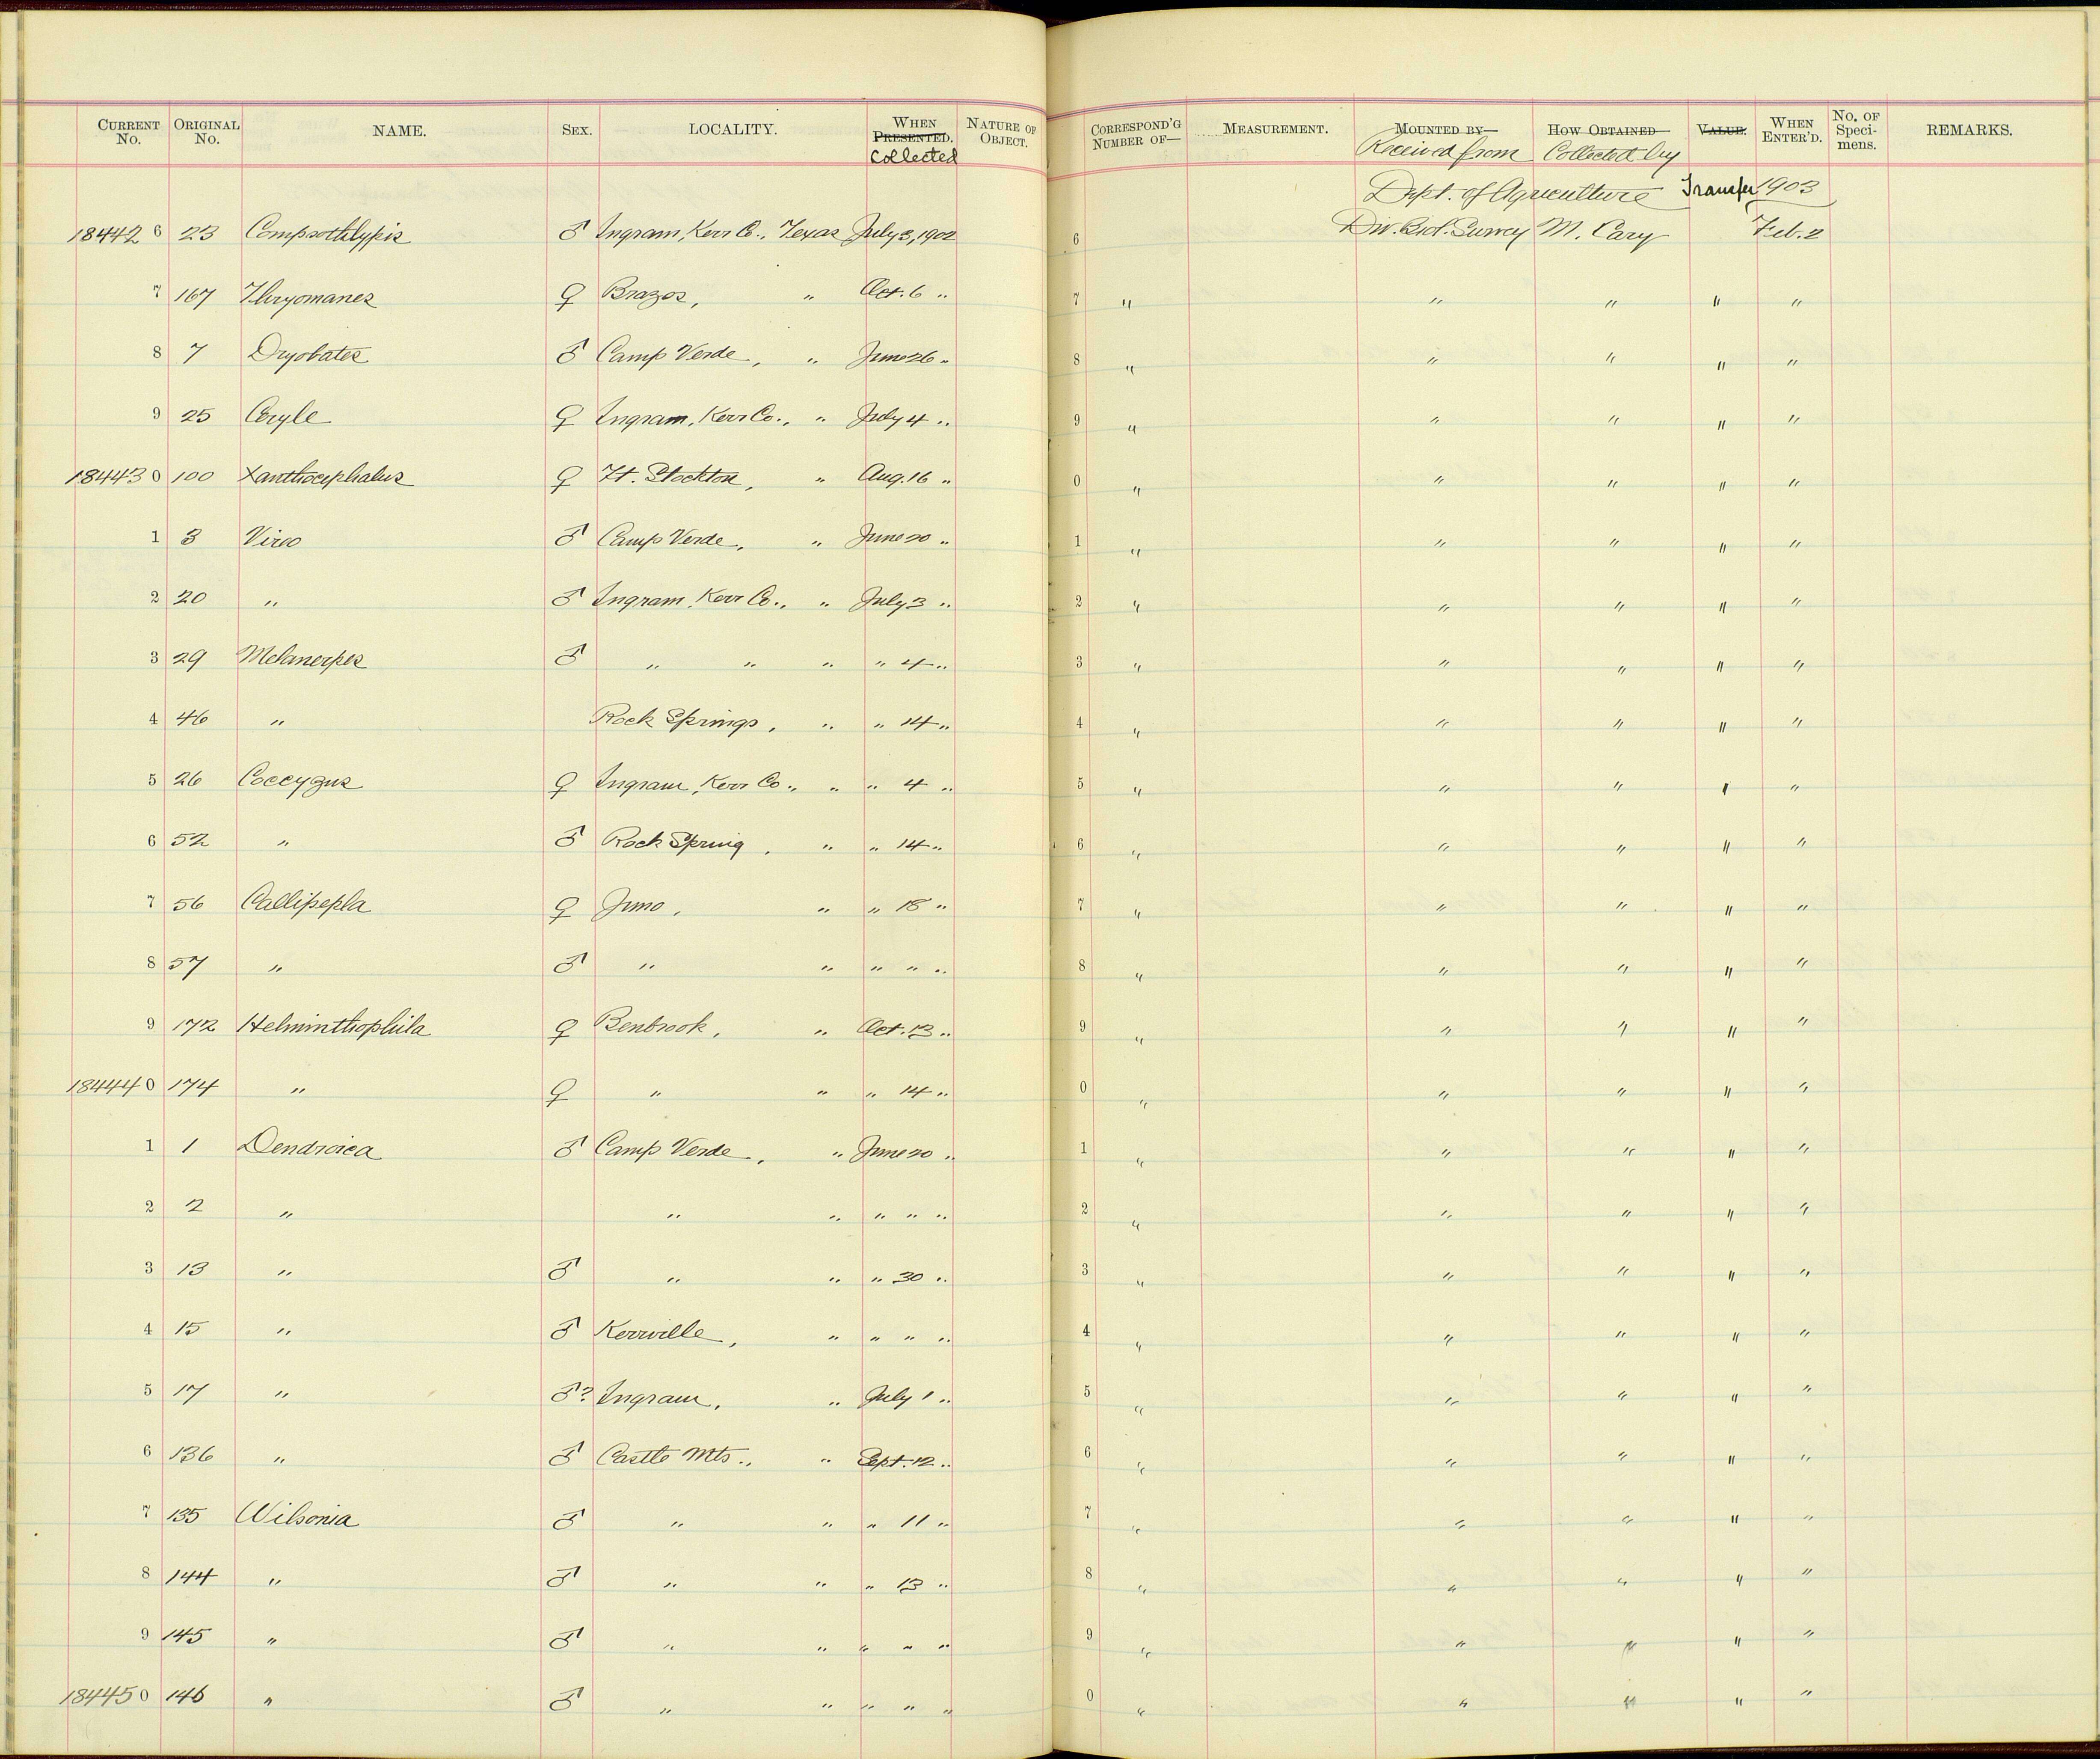 CURRENT No. ORIGINAL No. NAME. SEX. LOCALITY. WHEN PRESENTED. Collected NATURE OF OBJECT. CORRESPOND'G NUMBER OF— MEASUREMENT. MOUNTED BY— Received from HOW OBTAINED Collected by VALUE. WHEN ENTER'D. No. OF Speci-mens. REMARKS.
Dept. of Agriculture Transfer 1903
18442 6 23 Compsothlypis ♂ Ingram, Kerr Co., Texas July 3, 1902 6 Div. Biol. Survey M. Cary Feb. 2
7 167 Thryomanes ♀ Brazos, " Oct. 6 " 7 " " " " "
8 7 Dryobates ♂ Camp Verde, " June 26 " 8 " " " " "
9 25 Ceryle ♀ Ingram, Kerr Co., " July 4 " 9 " " " " "
18443 0 100 Xanthocephalus ♀ Ft. Stockton, " Aug. 16 " 0 " " " " "
1 3 Vireo ♂ Camp Verde, " June 20 " 1 " " " " "
2 20 " ♂ Ingram, Kerr Co., " July 3 " 2 " " " " "
3 29 Melanerpes ♂ " " " " 4 " 3 " " " " "
4 46 " Rock Springs, " " 14 " 4 " " " " "
5 26 Coccyzus ♀ Ingram, Kerr Co., " " 4 " 5 " " " " "
6 52 " ♂ Rock Spring, " " 14 " 6 " " " " "
7 56 Callipepla ♀ Juno, " " 18 " 7 " " " " "
8 57 " ♂ " " " " " 8 " " " " "
9 172 Helminthophila ♀ Benbrook, " Oct. 13 " 9 " " " " "
18444 0 174 " ♀ " " " 14 " 0 " " " " "
1 1 Dendroica ♂ Camp Verde, " June 20 " 1 " " " " "
2 2 " " " " " " 2 " " " " "
3 13 " ♂ " " " 30 " 3 " " " " "
4 15 " ♂ Kerrville, " " " " 4 " " " " "
5 17 " ♂? Ingram, " July 1 " 5 " " " " "
6 136 " ♂ Castle Mts., " Sept. 12 " 6 " " " " "
7 135 Wilsonia ♂ " " " 11 " 7 " " " " "
8 144 " ♂ " " " 13 " 8 " " " " "
9 145 " ♂ " " " " " 9 " " " " "
18445 0 146 " ♂ " " " " " 0 " " " " "